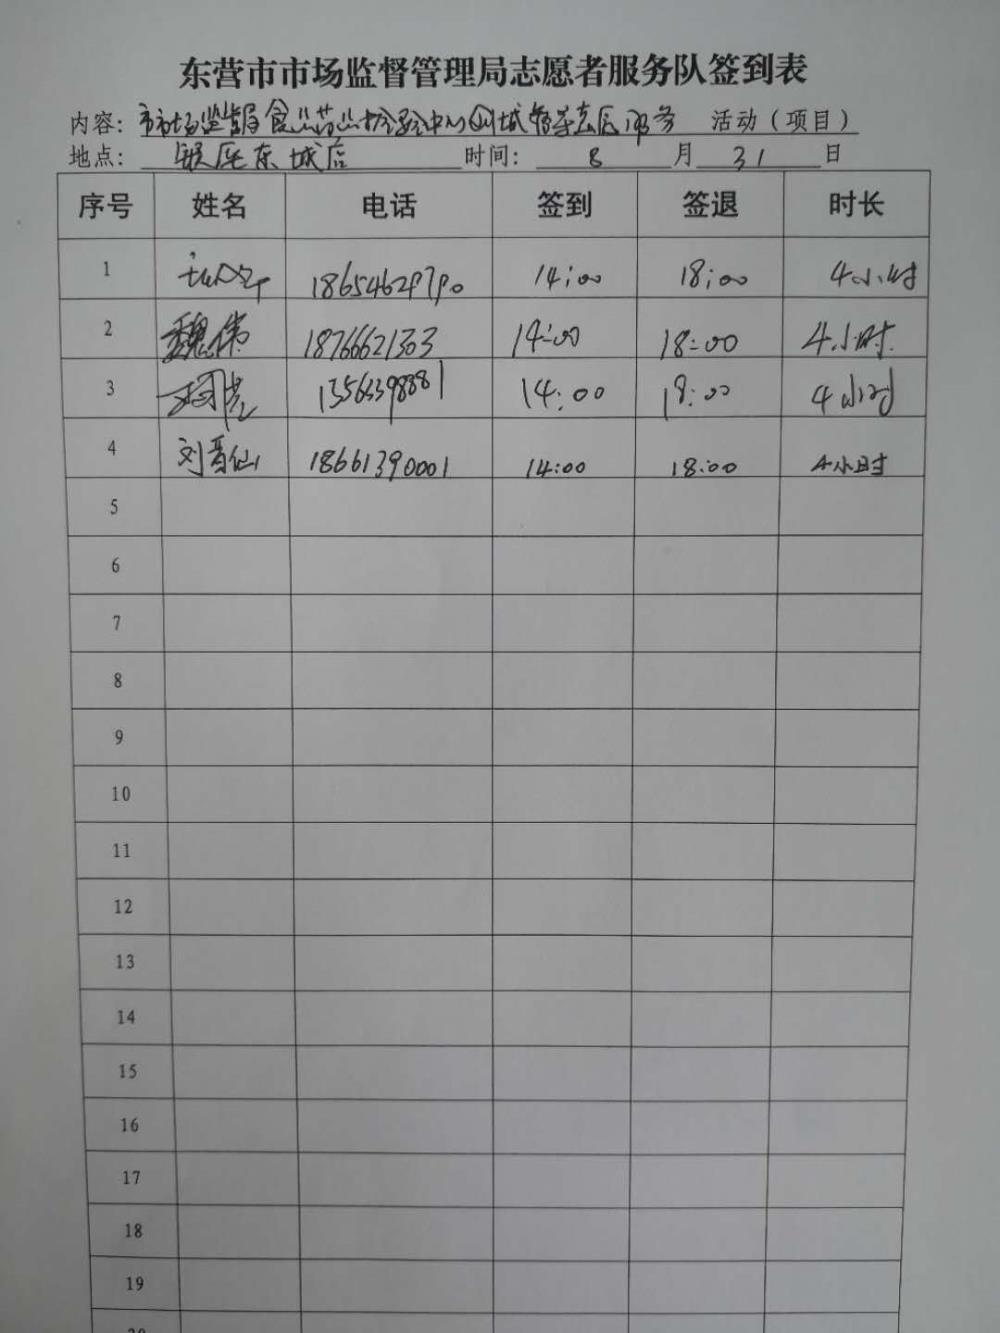 东营市市场监督管理局志愿者服务队签到表
内容: 市市场监督局食品药品检验中心创城督导志愿服务 活动（项目）
地点: 银座东城店 时间: 8 月 31 日
序号 姓名 电话 签到 签退 时长
1 14:00 18:00 4小时
2 魏伟 18766621303 14:00 18:00 4小时
3 14:00 18:00 4小时
4 刘晋仙 18661390001 14:00 18:00 4小时
5
6
7
8
9
10
11
12
13
14
15
16
17
18
19
20